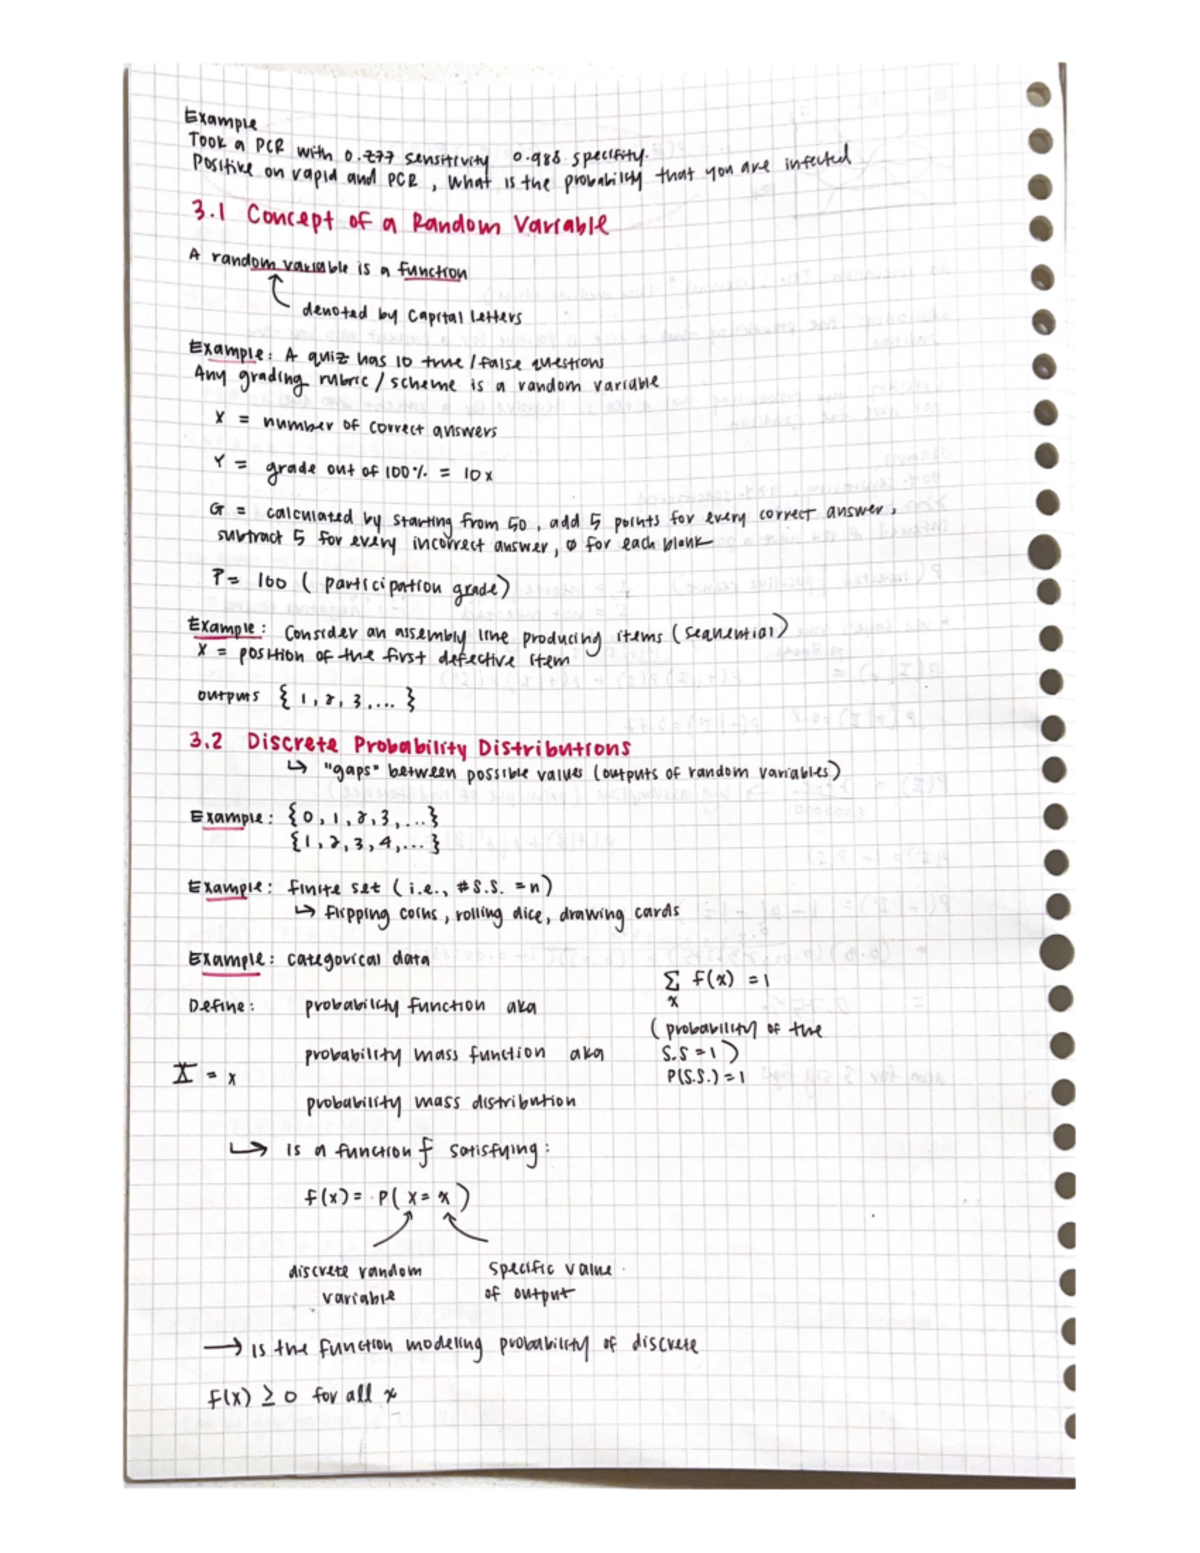 Example
Took a PCR with 0.777 sensitivity 0.988 specifity.
Positive on rapid and PCR, what is the probability that you are infected
3.1 Concept of a Random Variable
A random variable is a function
denoted by capital letters
Example: A quiz has 10 true/false questions
Any grading rubric/scheme is a random variable
X = number of correct answers
Y = grade out of 100% = 10x
G = calculated by starting from 50, add 5 points for every correct answer,
subtract 5 for every incorrect answer, 0 for each blank
P= 100 (participation grade)
Example: Consider an assembly line producing items (sequential)
X = position of the first defective item
outputs {1,2,3,... }
3.2 Discrete Probability Distributions
↳ "gaps" between possible values (outputs of random variables)
Example: {0,1,2,3,...}
{1,2,3,4,...}
Example: finite set (i.e., #S.S. =n)
↳ flipping coins, rolling dice, drawing cards
Example: categorical data
Σ f(x) =1
x
Define: probability function aka
(probability of the
probability mass function aka
S.S =1)
X = x
P(S.S.)=1
probability mass distribution
↳ is a function f satisfying:
f(x)= P(X=x)
discrete random
variable
specific value
of output
→ is the function modeling probability of discrete
f(x) ≥ 0 for all x